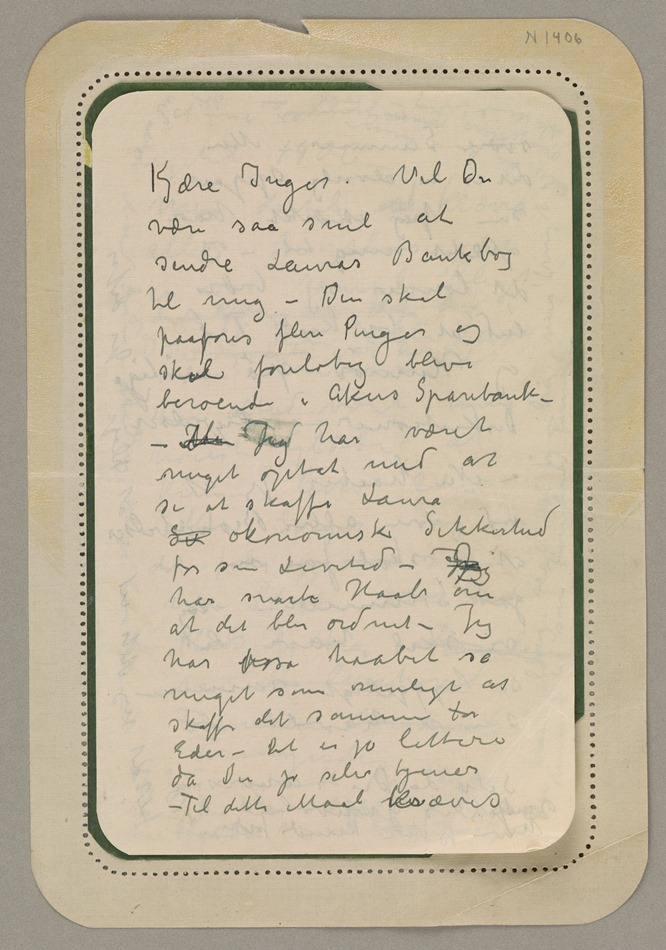 N 1406
Kjære Inger. Vil Du
være saa snil at
sende Lauras Bankbog
til mig – Den skal
paaføres flere Penger og
skal foreløbig blive
beroende i Akers Sparebank –
– Jeg har været
meget optat med at
se at skaffe Laura
økonomisk Sikkerhed
for sin Levetid – Jeg
har snart Haab om
at det blir ordnet – Jeg
har haabet så
meget som muligt at
skaffe det samme for
Eder – Det er jo lettere
da Du jo selv tjener
– Til dette Maal kræves